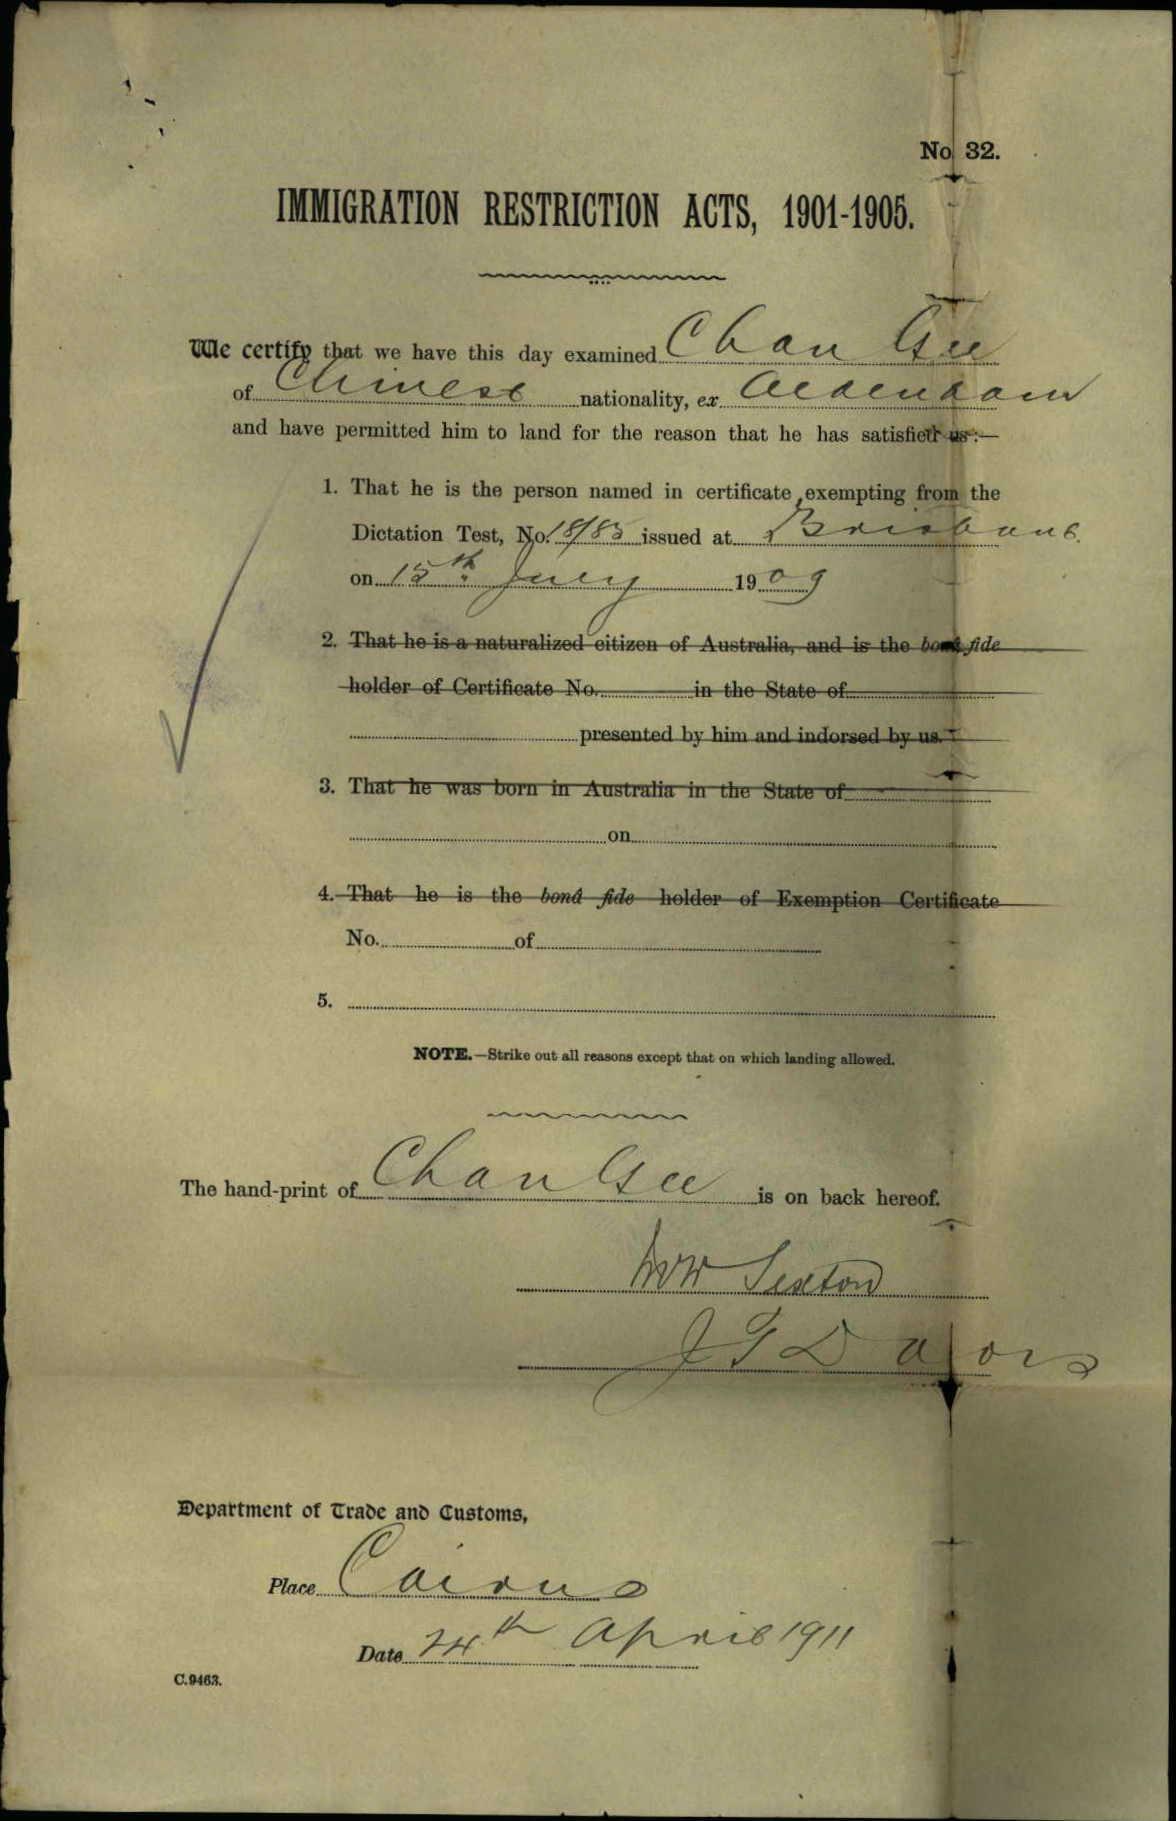 No. 32.
IMMIGRATION RESTRICTION ACTS, 1901-1905.
We certify that we have this day examined Chan Gee
of Chinese nationality, ex Aldenham
and have permitted him to land for the reason that he has satisfied us:—
1. That he is the person named in certificate exempting from the
Dictation Test, No. 18/85 issued at Brisbane.
on 15th July 1909
2. That he is a naturalized citizen of Australia, and is the bonâ fide
holder of Certificate No. in the State of
presented by him and indorsed by us.
3. That he was born in Australia in the State of
on
4. That he is the bonâ fide holder of Exemption Certificate
No. of
5.
NOTE.—Strike out all reasons except that on which landing allowed.
The hand-print of Chan Gee is on back hereof.
WW Sexton
J T D
Department of Trade and Customs,
Place Cairns
Date 24th April 1911
C.9463.